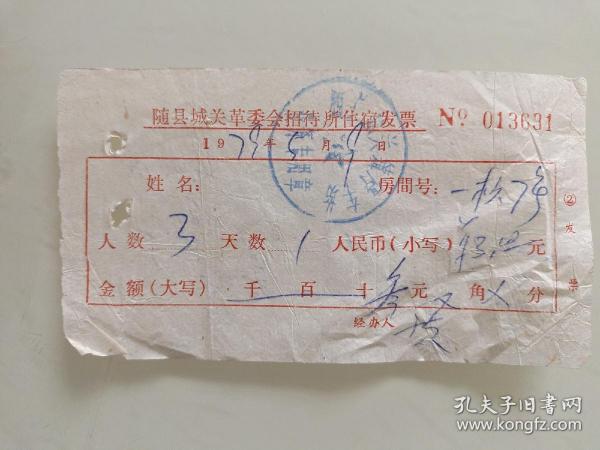 随县城关革委会招待所住宿发票 № 013631
1979年5月9日
姓名： 房間号：
人数 3 天数 1 人民币（小写）¥3.00元
金额（大写） 千 百 十 叁元 角 分
经办人
②发票
孔夫子旧书网
www.kongfz.com